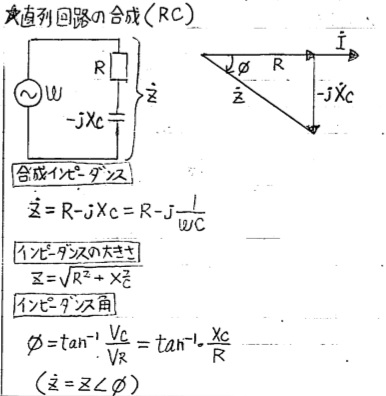 ★直列回路の合成(RC)
R
ω
-jXc
Ż
İ
φ
R
Ż
-jẊc
合成インピーダンス
Ż = R-jXc = R-j 1/ωC
インピーダンスの大きさ
Z = √R² + Xc²
インピーダンス角
φ = tan⁻¹ Vc/VR = tan⁻¹· Xc/R
(ż = Z∠φ)